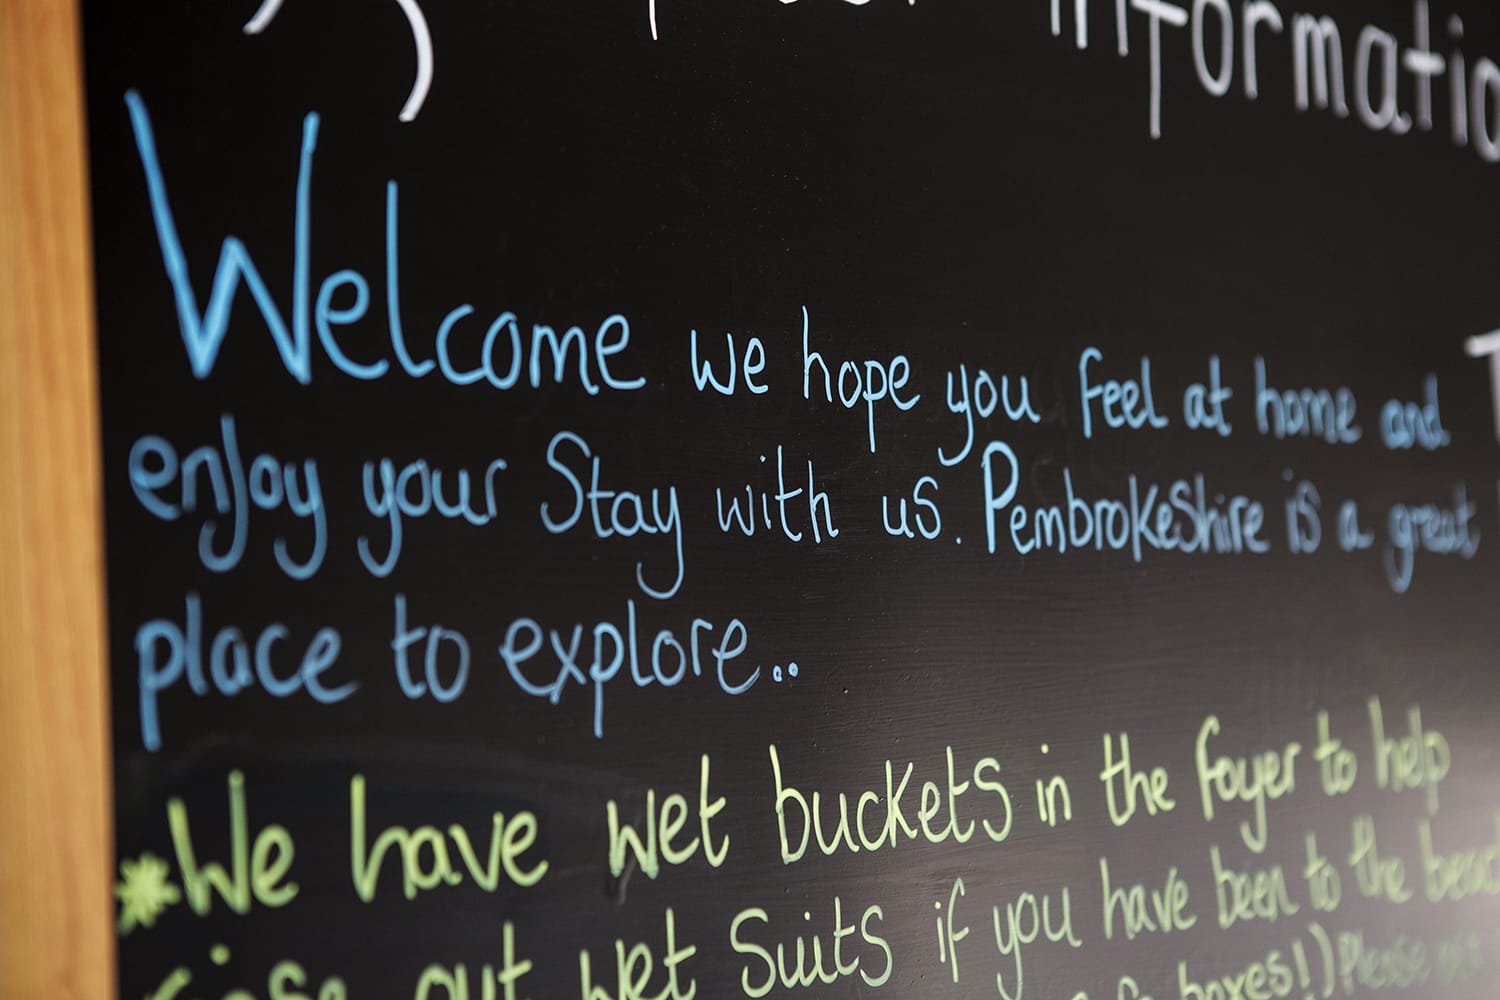 informatio
Welcome we hope you feel at home and
enjoy your stay with us. Pembrokeshire is a great
place to explore..
*We have wet buckets in the foyer to help
rinse out wet suits if you have been to the beac
boxes!) Please